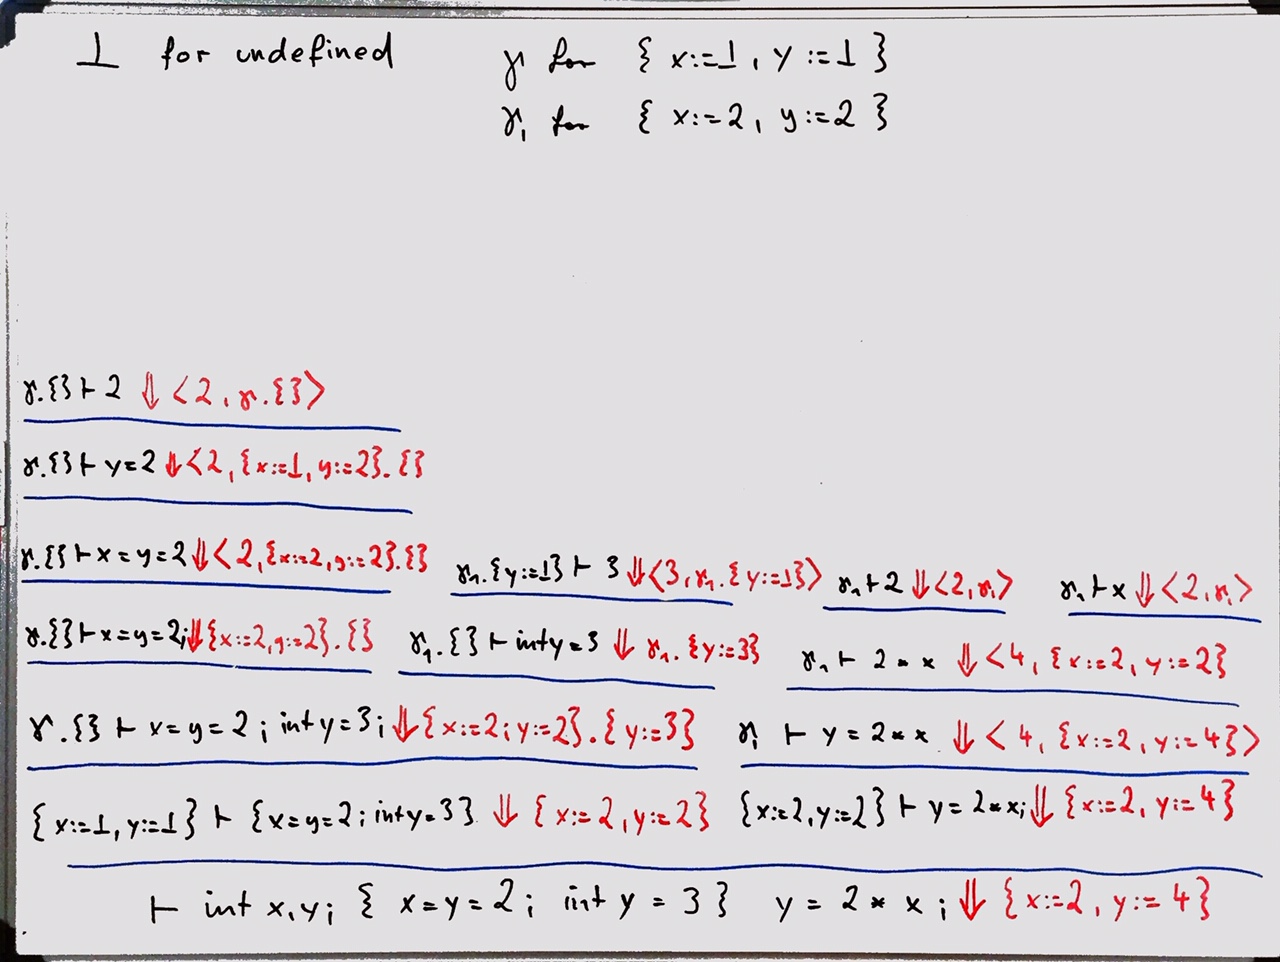 ⊥ for undefined γ for { x:=⊥, y:=⊥ }
γ₁ for { x:=2, y:=2 }
γ.{} ⊢ 2 ⇓ <2, γ.{}>
γ.{} ⊢ y=2 ⇓ <2, {x:=⊥, y:=2}.{}
γ.{} ⊢ x=y=2 ⇓ <2, {x:=2, y:=2}.{} γ₁.{y:=⊥} ⊢ 3 ⇓ <3, γ₁.{y:=⊥}> γ₁ ⊢ 2 ⇓ <2, γ₁> γ₁ ⊢ x ⇓ <2, γ₁>
γ.{} ⊢ x=y=2; ⇓ {x:=2, y:=2}.{} γ₁.{} ⊢ int y=3 ⇓ γ₁.{y:=3} γ₁ ⊢ 2 * x ⇓ <4, {x:=2, y:=2}
γ.{} ⊢ x=y=2; int y=3; ⇓ {x:=2; y:=2}.{y:=3} γ₁ ⊢ y = 2 * x ⇓ <4, {x:=2, y:=4}>
{x:=⊥, y:=⊥} ⊢ {x=y=2; int y=3} ⇓ {x:=2, y:=2} {x:=2, y:=2} ⊢ y = 2 * x; ⇓ {x:=2, y:=4}
⊢ int x,y; { x=y=2; int y = 3 } y = 2 * x; ⇓ {x:=2, y:=4}